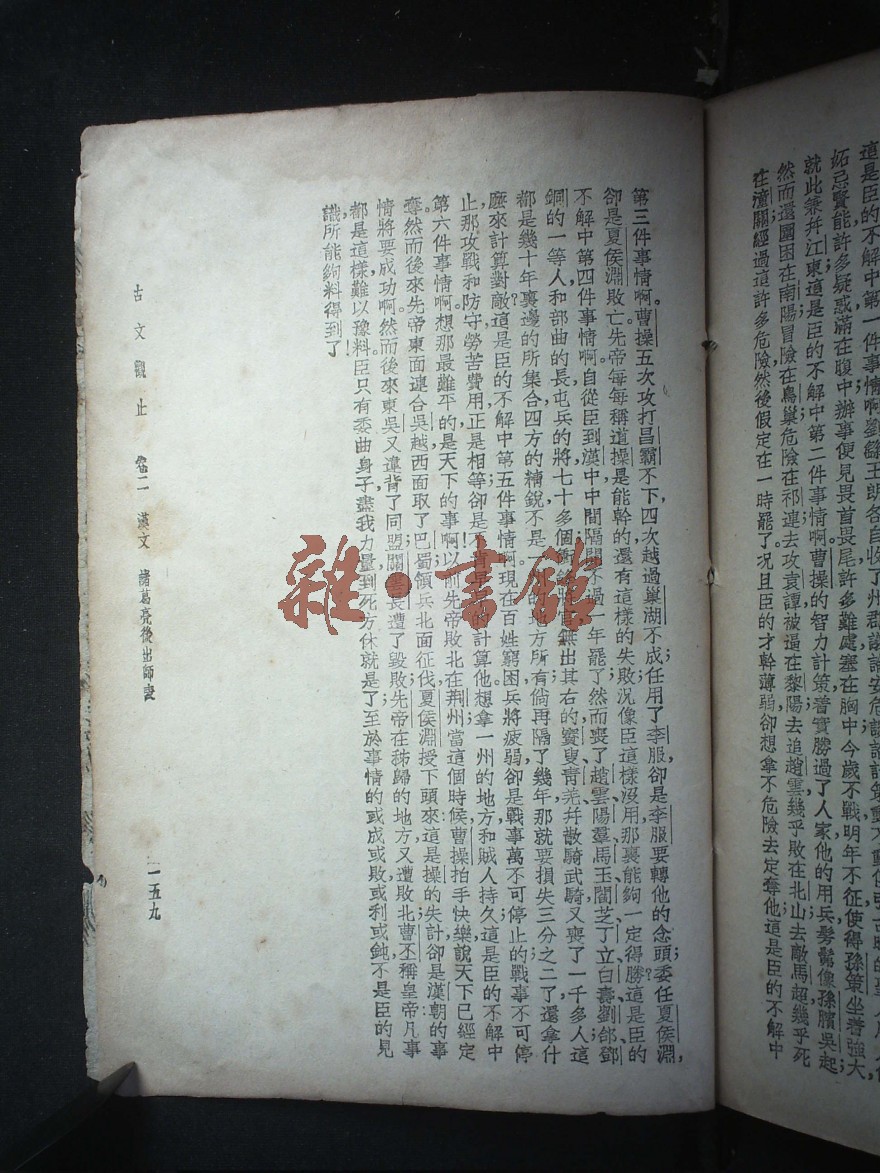 這是臣的不解中第一件事情啊劉繇王朗各自收了州郡議論安危説計策
妬忌賢能許多疑惑滿在腹中辦事便見畏首畏尾許多難處塞在胸中今歲不戰明年不征使得孫策坐着強大
就此兼并江東這是臣的不解中第二件事情啊曹操的智力計策着實勝過了人家他的用兵髣髴像孫臏吳起
然而還圍困在南陽冒險在烏巢危險在祁連去攻袁譚被逼在黎陽去追趙雲幾乎敗在北山去敵馬超幾乎死
在潼關經過這許多危險然後假定在一時罷了况且臣的才幹薄弱卻想拿不危險去定奪他這是臣的不解中
第三件事情啊。曹操五次攻打昌霸不下四次越過巢湖不成任用了李服卻是李服要轉他的念頭委任夏侯淵
卻是夏侯淵敗亡先帝每每稱道操是能幹的還有這樣的失敗況像臣這樣沒用那裏能夠一定得勝這是臣的
不解中第四件事情啊。自從臣到漢中中間隔開不過一年罷了然而喪了趙雲陽羣馬玉閻芝丁立白壽劉郃鄧
銅的一等人和部曲的長屯兵的將七十多個無出其右的竇叟靑羌幷散騎武騎又喪了一千多人這
都是幾十年裏邊的所集合四方的精銳不是一地方所有倘再隔了幾年那就要損失三分之二了還拿什
麽來計算對敵這是臣的不解中第五件事情啊現在百姓窮困兵將疲弱卻是戰事萬不可停止的戰事不可停
止那攻戰和防守勞苦費用正是相等卻是不肯早早的計算他想拿一州的地方和賊人持久這是臣的不解中
第六件事情啊。想那最難平的是天下的事啊以前先帝敗北在荆州當這個時候曹操拍手快樂説天下已經定
奪。然而後來先帝東面連合吳越西面取了巴蜀領兵北面征伐夏侯淵授下頭來這是操的失計卻是漢朝的事
情將要成功啊。然而後來東吳又違背了同盟關長遭了毀敗先帝在秭歸的地方又遭敗北曹丕稱皇帝凡事
都是這樣難以豫料臣只有委曲身子盡我力量到死方休就是了至於事情的或成或敗或利或鈍不是臣的見
識所能夠料得到了！
古文觀止 卷二 漢文 諸葛亮後出師表
一五九
雜·書館